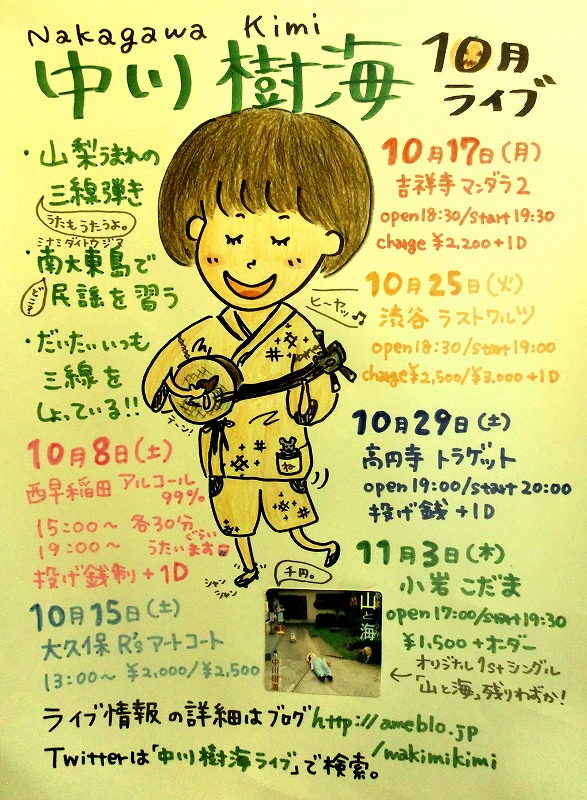 Nakagawa Kimi
中川 樹海
10月
ライブ
・山梨うまれの
三線弾き
うたもうたうよ。
ミナミダイトウジマ
・南大東島で
どこ?
民謡を習う
・だいたいいつも
三線を
しょっている!!
10月8日(土)
西早稲田 アルコール
99%
15:00〜 各30分
ぐらい
19:00〜 うたいます
投げ銭制+1D
10月15日(土)
大久保 R'sアートコート
13:00〜 ¥2,000/¥2,500
ヒ〜ヤッ♪
テーン!
ね
ジャン
ジャン
10月17日(月)
吉祥寺 マンダラ2
open 18:30/start 19:30
charge ¥2,200+1D
10月25日(火)
渋谷 ラストワルツ
open 18:30/start 19:00
charge ¥2,500/¥3,000+1D
10月29日(土)
高円寺 トラゲット
open 19:00/start 20:00
投げ銭+1D
11月3日(木)
小岩 こだま
open 17:00/start 19:30
¥1,500+オーダー
千円。
山と海
中川樹海
← オリジナル1stシングル
「山と海」残りわずか!
ライブ情報の詳細はブログ http://ameblo.jp
/wakimikimi
Twitterは「中川樹海ライブ」で検索。